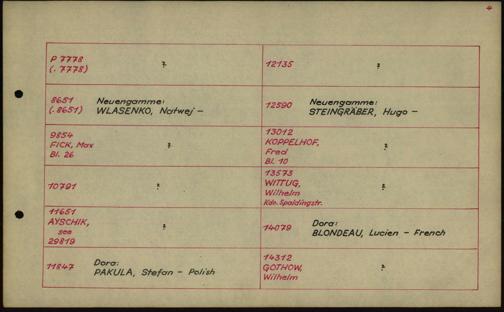 4
P 7778
(. 7778)
?
12135
?
8651
(. 8651)
Neuengamme:
WLASENKO, Natwej –
12590
Neuengamme:
STEINGRÄBER, Hugo –
9854
FICK, Max
Bl. 26
?
13012
KOPPELHOF,
Fred
Bl. 10
?
10791
?
13573
WITTUG,
Wilhelm
Kdo. Spaldingstr.
?
11651
AYSCHIK,
see
29819
?
14079
Dora:
BLONDEAU, Lucien – French
11847
Dora:
PAKULA, Stefan – Polish
14312
GOTHOW,
Wilhelm
?